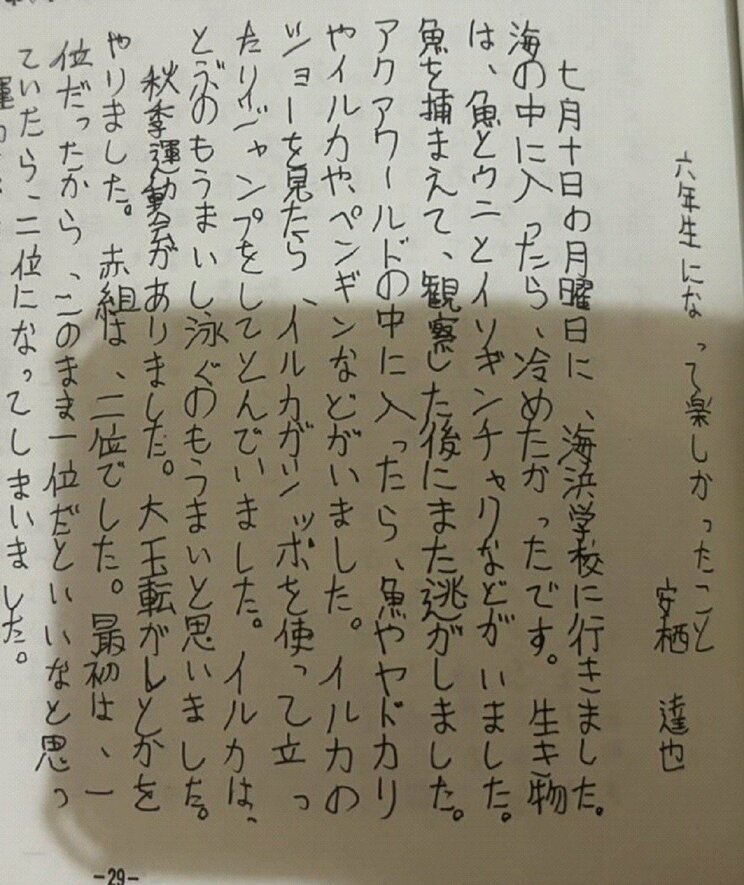 六年生になって楽しかったこと
安栖 達也
七月十日の月曜日に、海浜学校に行きました。
海の中に入ったら、冷めたかったです。生き物
は、魚とウニとイソギンチャクなどがいました。
魚を捕まえて、観察した後にまた逃がしました。
アクアワールドの中に入ったら、魚ややドカリ
やイルカや、ペンギンなどがいました。イルカの
ショーを見たら、イルカがシッポを使って立っ
たりジャンプをしてとんでいました。イルカは、
とぶのもうまいし泳ぐのもうまいと思いました。
秋季運動会がありました。大玉転がしとかを
やりました。赤組は、二位でした。最初は、一
位だったから、このまま一位だといいなと思っ
ていたら、二位になってしまいました。
-29-